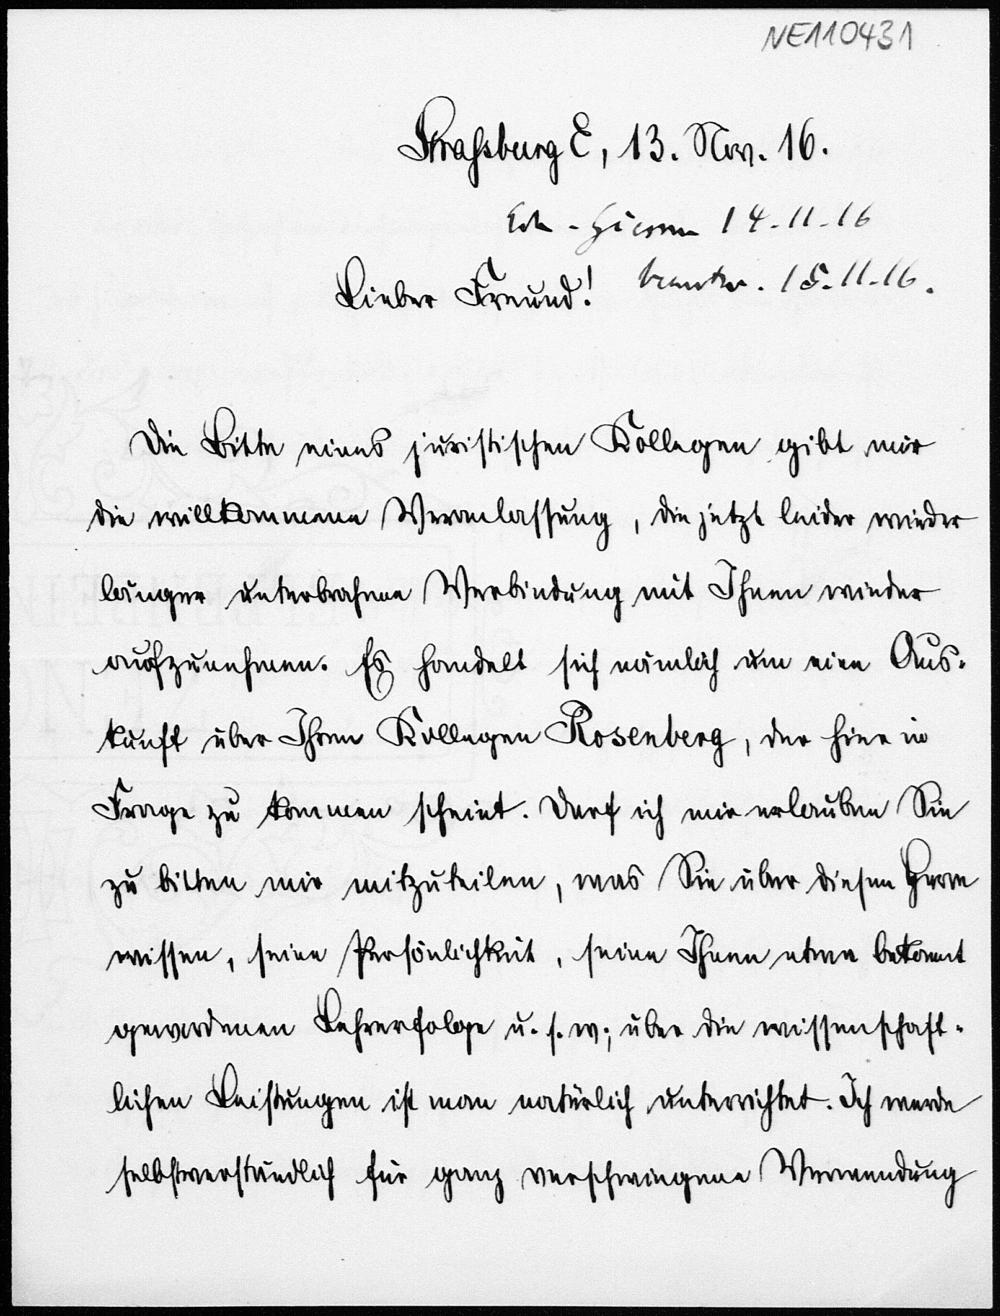 NE110431
Strassburg E, 13. Nov. 16.
14.-11.-16
Lieber Freund! 15.-11.-16.
Die Bitte eines juristischen Kollegen gibt mir
die willkommene Veranlassung, die jetzt leider wieder
länger unterbrochene Verbindung mit Ihnen wieder
aufzunehmen. Es handelt sich nämlich um eine Aus-
kunft über Ihren Kollegen Rosenberg, der hier in
Frage zu kommen scheint. Darf ich mir erlauben Sie
zu bitten mir mitzuteilen, was Sie über diesen Herrn
wissen, seine Persönlichkeit, seine Ihnen etwa bekannt
gewordenen Lehrerfolge u. s. w.; über die wissenschaft-
lichen Leistungen ist man natürlich unterrichtet. Ich werde
selbstverständlich für ganz verschwiegene Verwendung